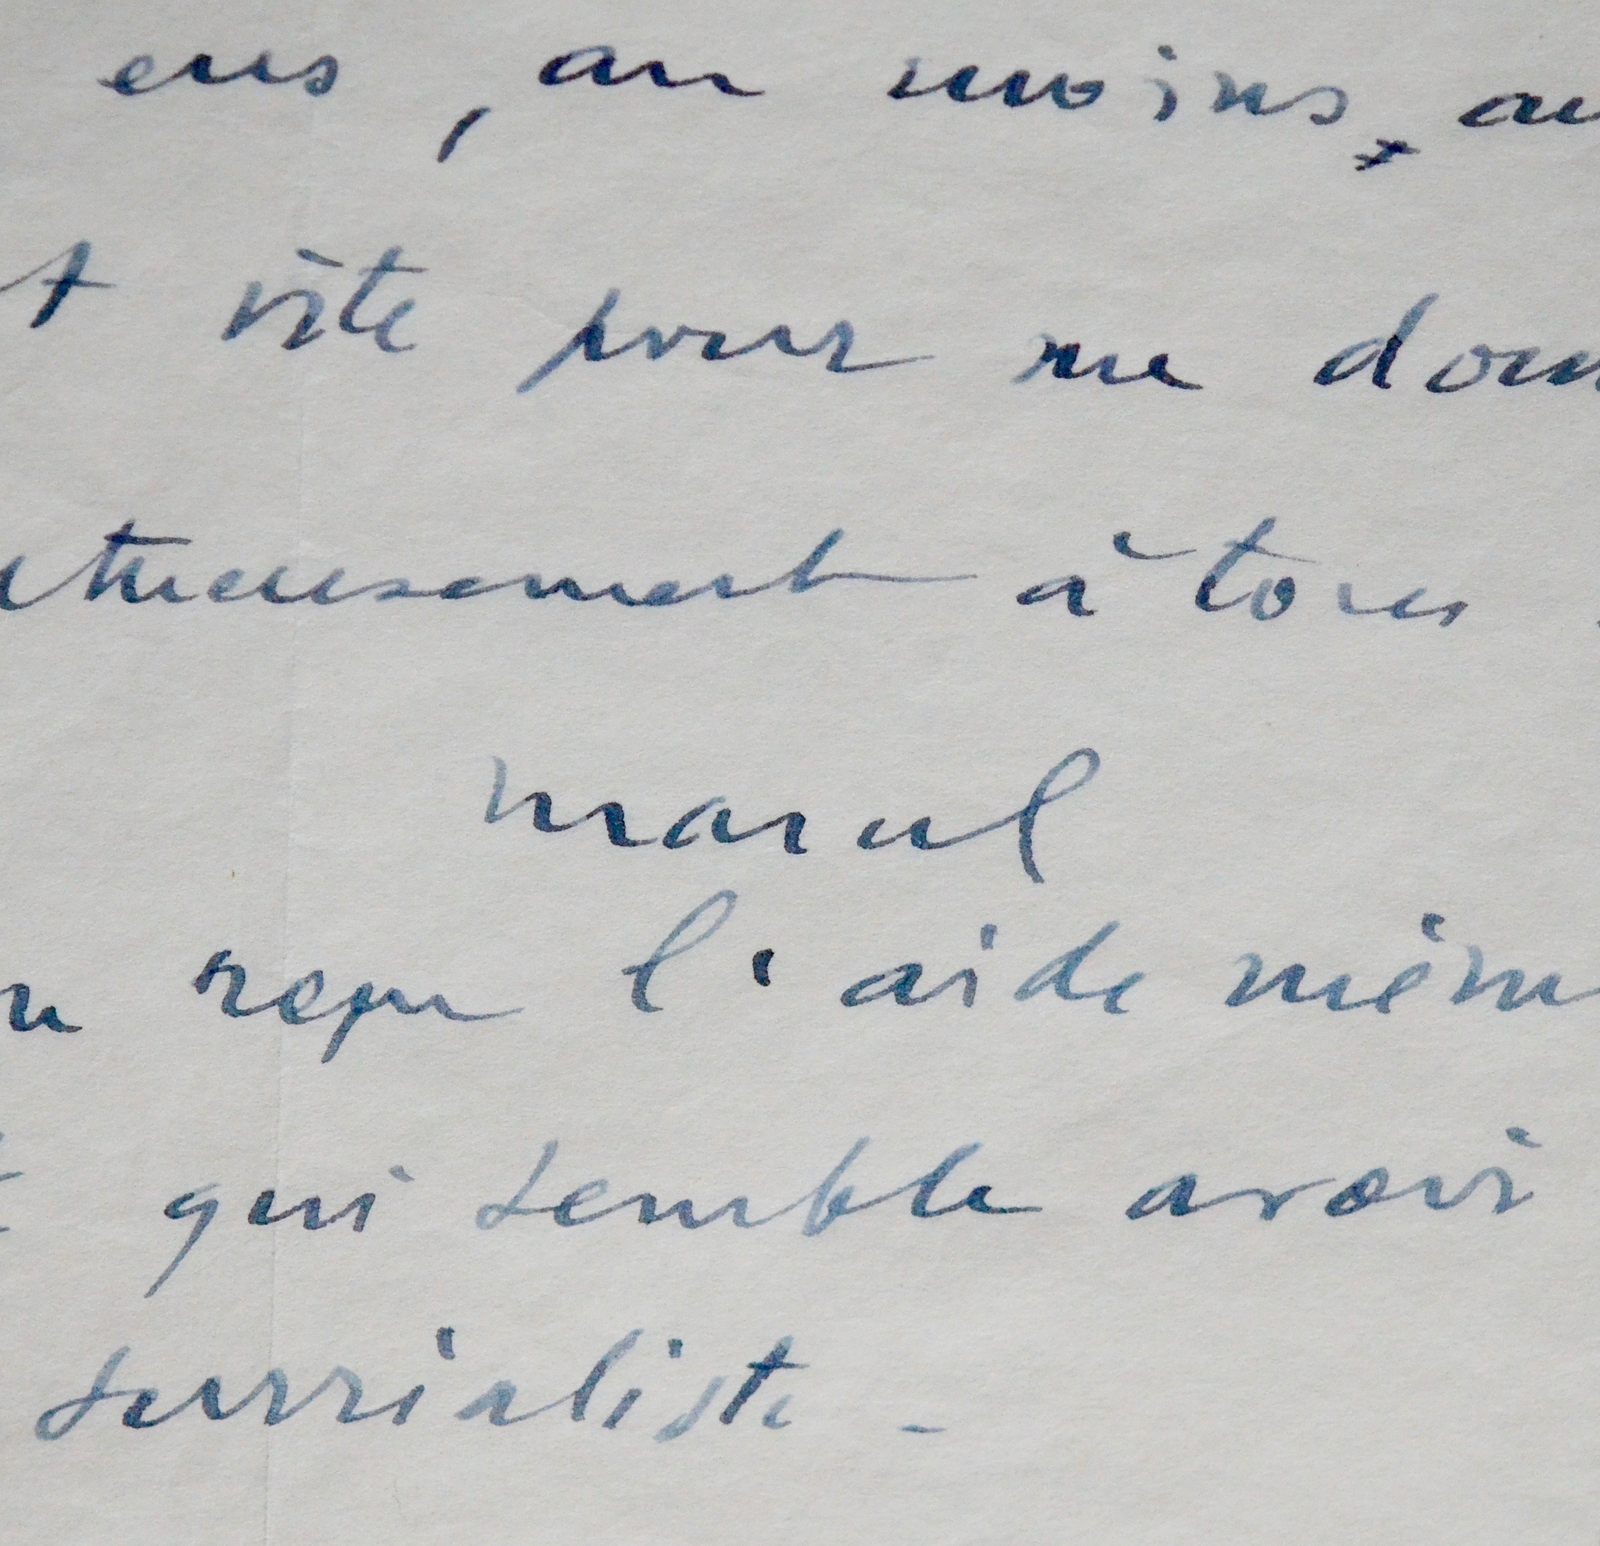 eus, au moins, au
t vite pour me donn
ctueusement à tous
Marcel
u reçu l'aide mém
qui semble avoir
surréaliste -